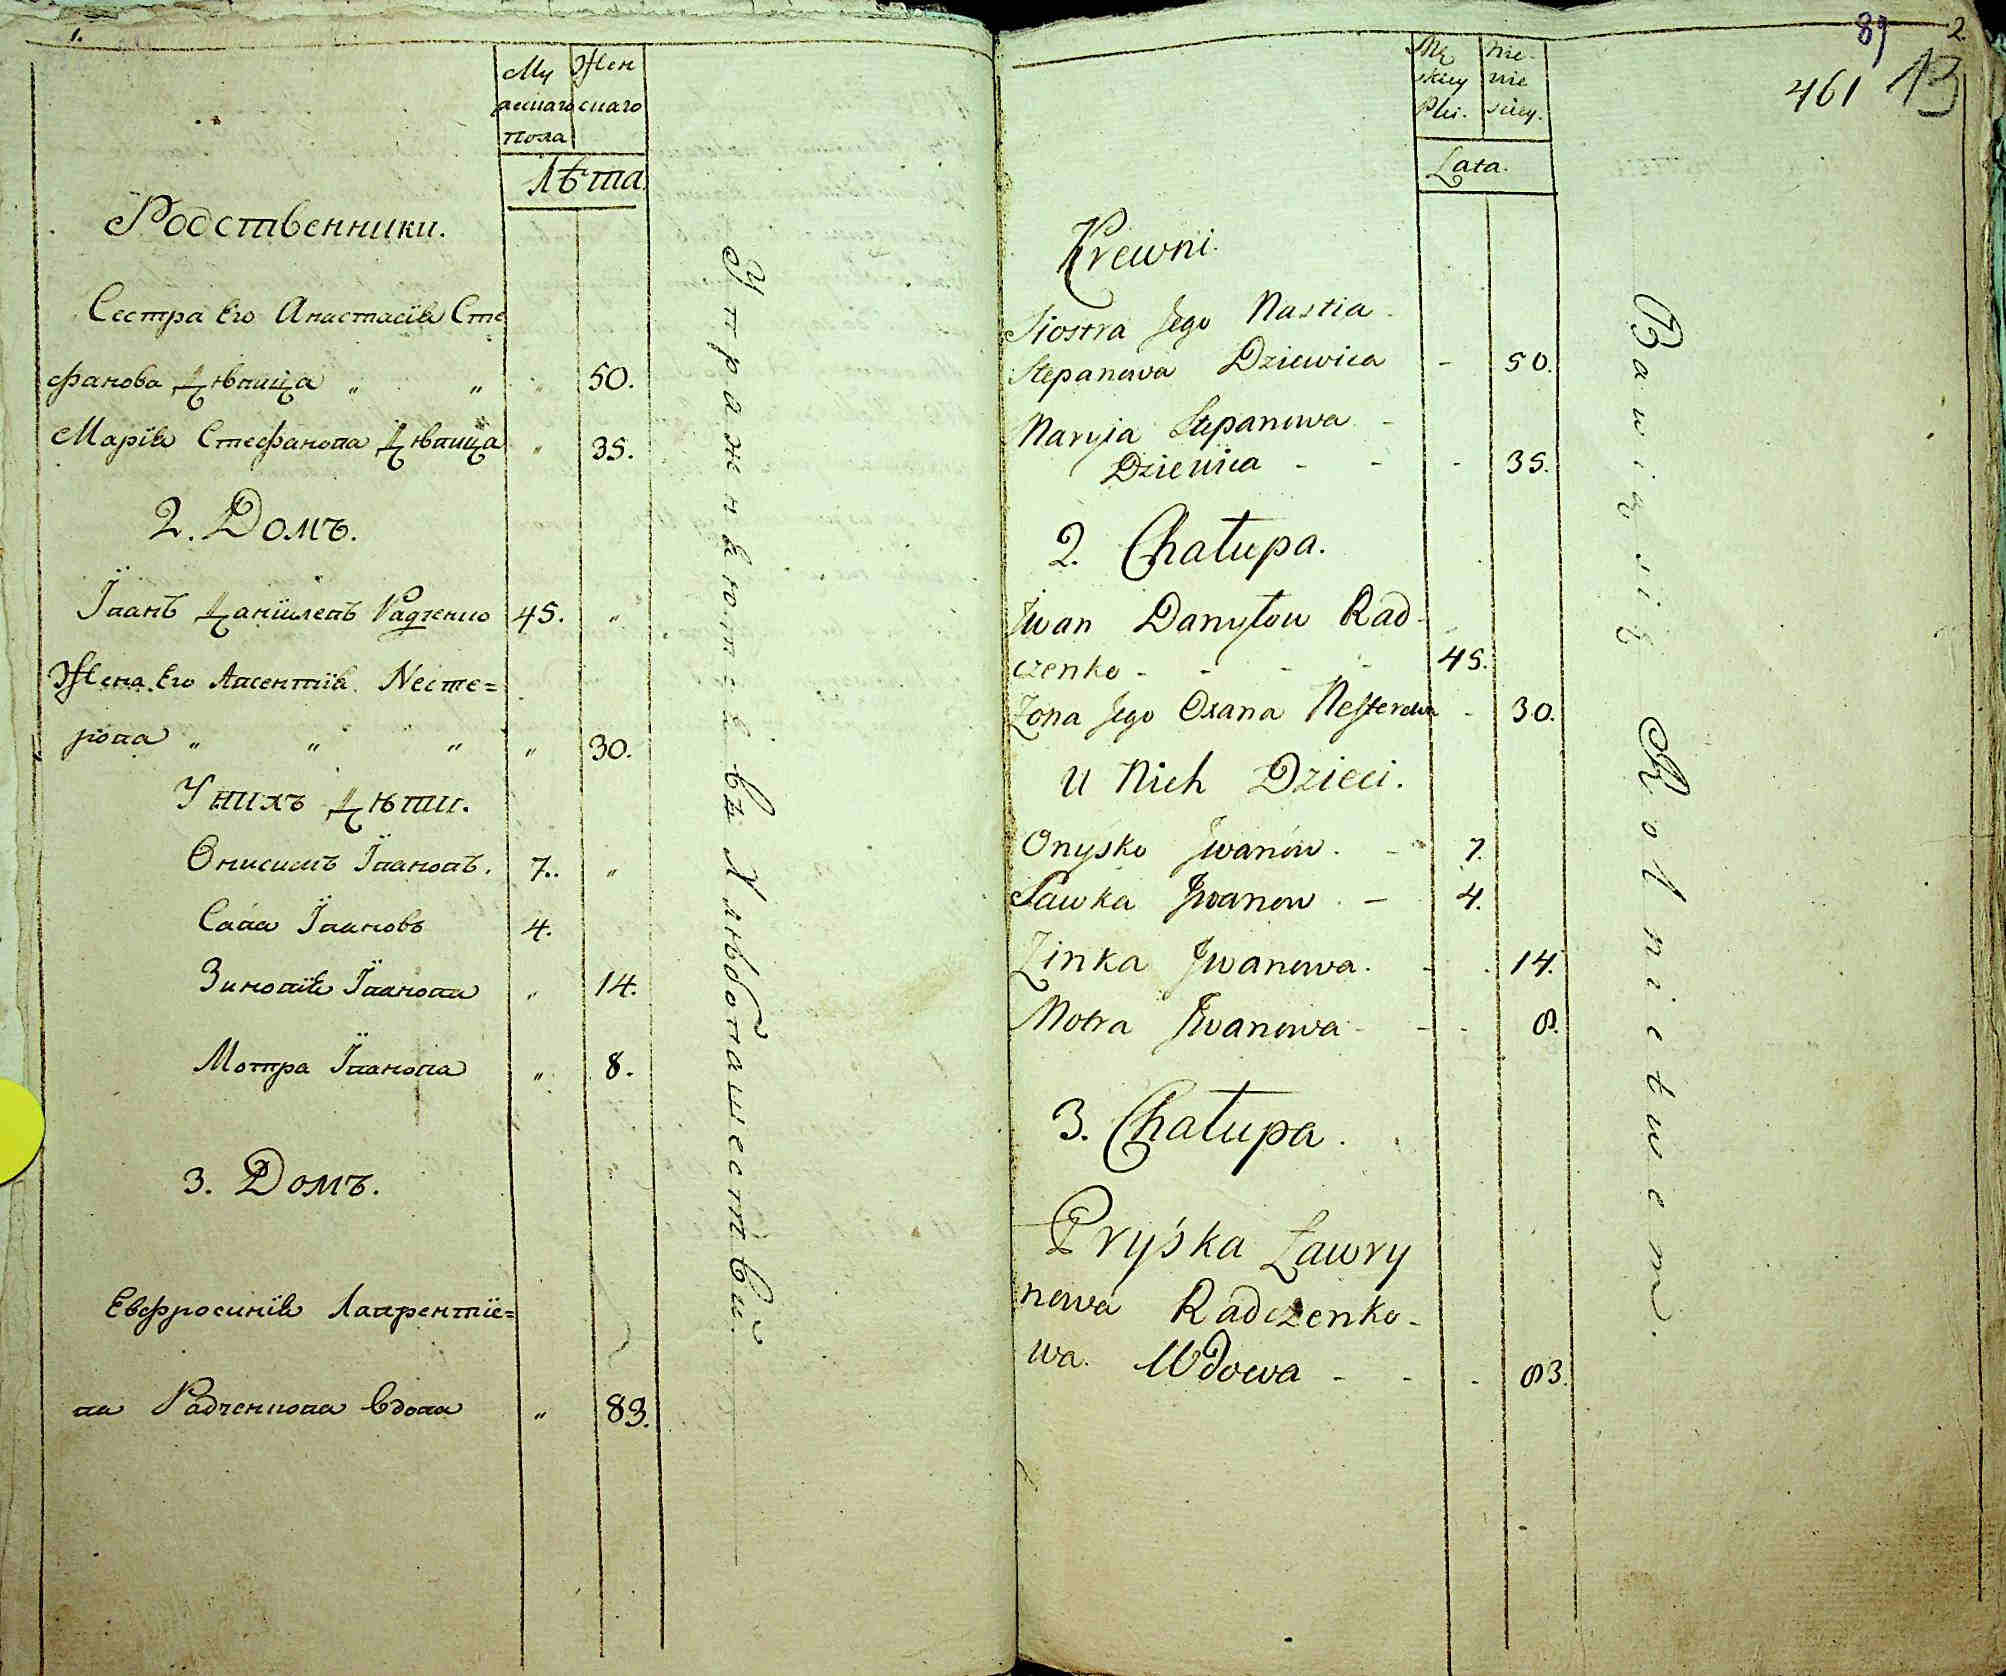 1.
Му
жескаго
пола
Жен
скаго
Лѣта.
Родственники.
Сестра Его Анастасія Сте
фанова Дѣвица „ „ „ 50.
Марія Стефанова Дѣвица „ 35.
2. Домъ.
Іванъ Даніиловъ Радченко 45. „
Жена Его Ксентія Несте=
рова „ „ „ „ 30.
У нихъ Дѣти.
Онисимъ Івановъ. 7. „
Сава Івановъ 4.
Зиновія Іванова „ 14.
Мотра Іванова „ 8.
3. Домъ.
Евфросинія Лаврентіе=
ва Радченкова вдова „ 83.
Упражняются въ Хлѣбопашествѣ
89 2.
461 13
Mę
skiey
Płci.
Lata.
Krewni.
Siostra Jego Nastia
Stepanowa Dziewica - 50.
Maryja Stepanowa -
Dziewica - - - 35.
2. Chałupa.
Jwan Danyłow Rad-
czenko - - - - 45.
Żona Jego Oxana Nesterowa - 30.
U Nich Dzieci.
Onyśko Jwanów. - 7.
Sawka Jwanow. - 4.
Zinka Jwanowa. - - 14.
Motra Jwanowa - - - 8.
3. Chałupa.
Pryśka Ławry
nowa Radczenko-
wa. Wdowa - - - 83.
Bawią się Rolnictwem.